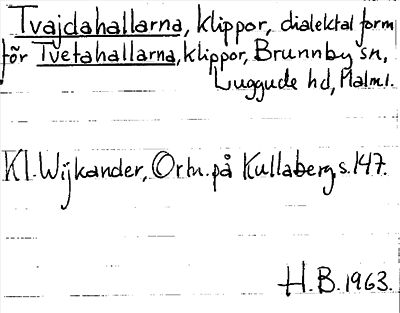 Tvajdahallarna, klippor, dialektal form
för Tvetahallarna, klippor, Brunnby sn,
Luggude hd, Malm l.
Kl. Wijkander, Ortn. på Kullaberg s. 147.
H. B. 1963.